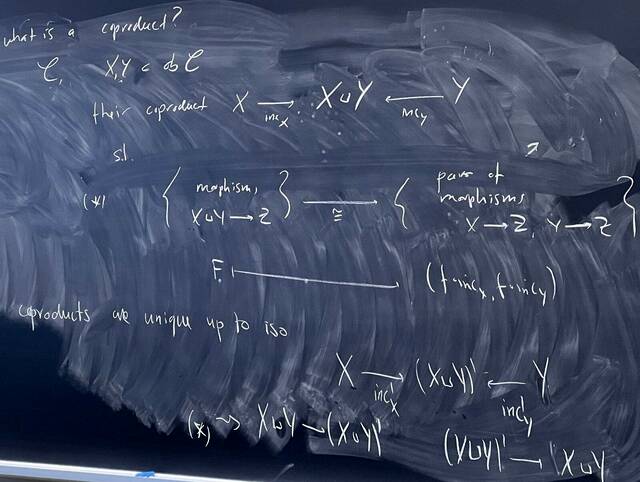 what is a coproduct?
C, X, Y ∈ ob C
their coproduct X —inc_X→ X ⊔ Y ←inc_Y— Y
s.t.
(*) { morphisms X ⊔ Y → Z } —≅→ { pairs of morphisms X → Z, Y → Z }
F ⟼ (f∘inc_X, f∘inc_Y)
coproducts are unique up to iso
X —inc'_X→ (X ⊔ Y)' ←inc'_Y— Y
(*) ⇝ X ⊔ Y → (X ⊔ Y)' (X ⊔ Y)' → X ⊔ Y